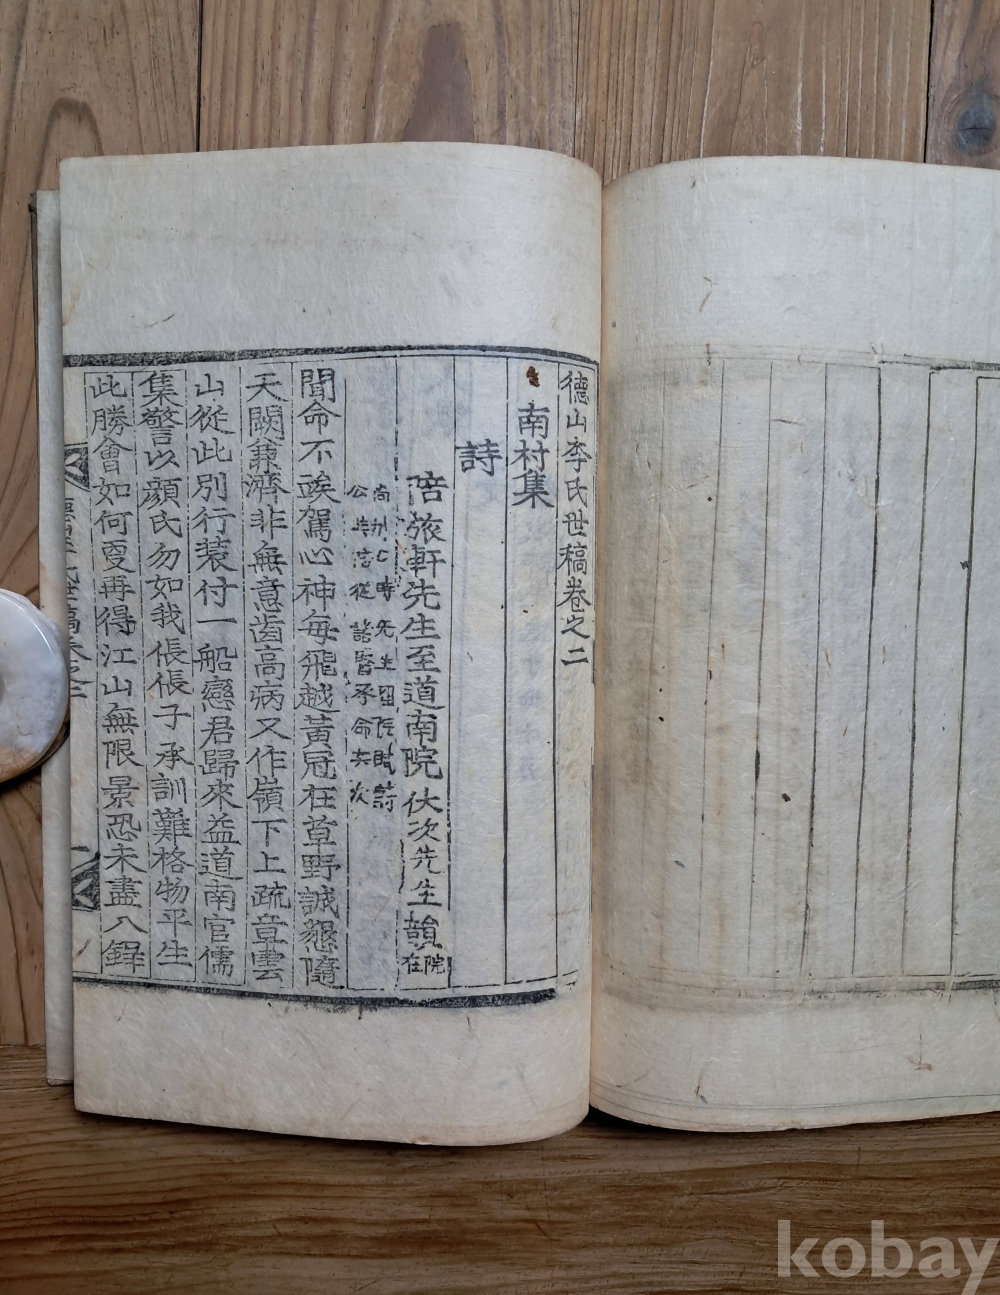 德山李氏世稿卷之二
南村集
詩
陪旅軒先生至道南院伏次先生韻院在
尙州七時先生留院賦詩
公時陪從諸賢承命夫次
聞命不諼駕心神每飛越黃冠在草野誠懇隨
天闕兼濟非無意齒高病又作嶺下上疏章雲
山從此別行裝付一船戀君歸來益道南官儒
集警以顔氏勿如我倀倀子承訓難格物平生
此勝會如何更再得江山無限景恐未盡八鐸
kobay